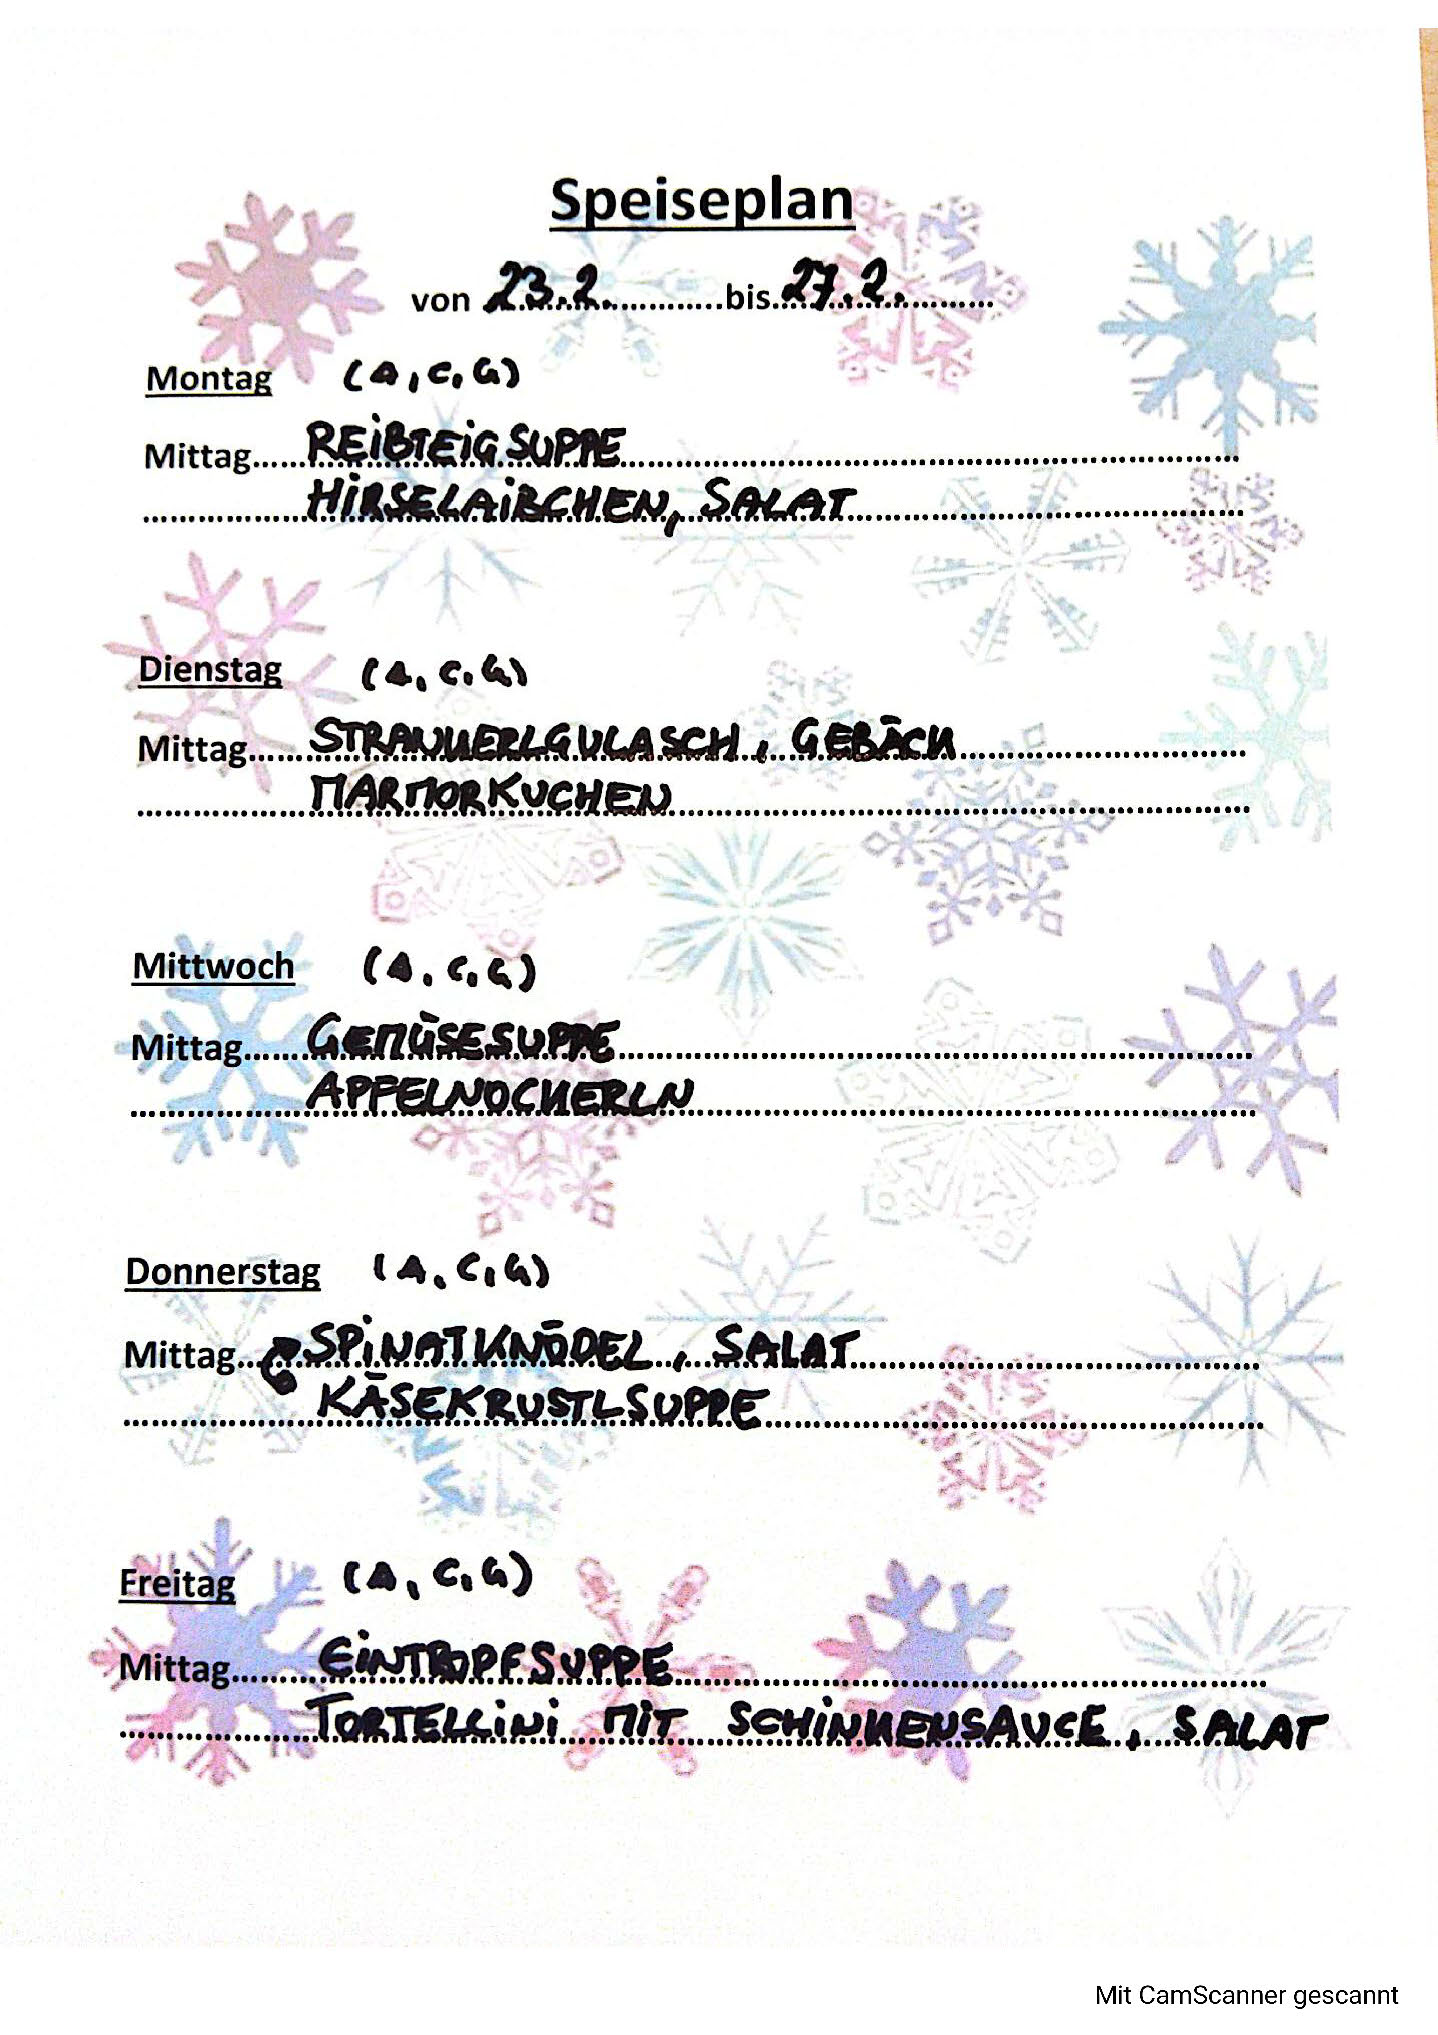 Speiseplan
von 23.2. bis 27.2.
Montag (A, C, G)
Mittag REIBTEIGSUPPE
HIRSELAIBCHEN, SALAT
Dienstag (A, C, G)
Mittag STRANKERLGULASCH, GEBÄCK
MARMORKUCHEN
Mittwoch (A, C, G)
Mittag GEMÜSESUPPE
APFELNOCKERLN
Donnerstag (A, C, G)
Mittag SPINATKNÖDEL, SALAT
KÄSEKRUSTLSUPPE
Freitag (A, C, G)
Mittag EINTROPFSUPPE
TORTELLINI MIT SCHINKENSAUCE, SALAT
Mit CamScanner gescannt